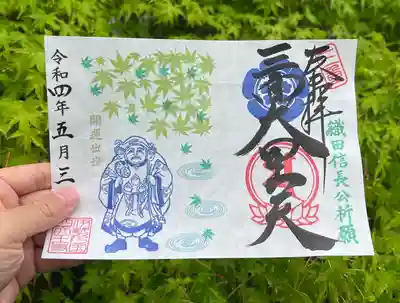 奉拝
織田信長公祈願
三面大黒天
開運出世
令和四年五月三